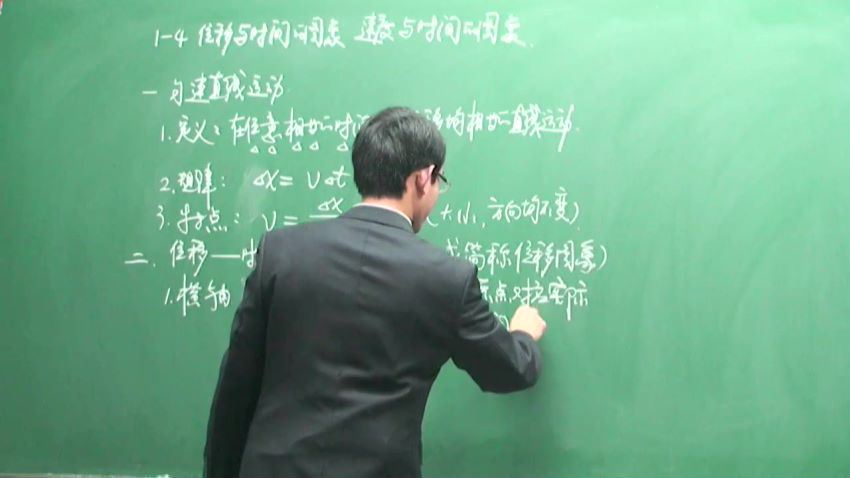 1-4 位移与时间的图象 速度与时间的图象.
一 匀速直线运动
1.定义: 在任意相等的时间 均相等的直线运动.
2.规律: Δx = vΔt
3.特点: v = Δx (大小,方向均不变)
二. 位移—时 或简称位移图象)
1.横轴 原点对应实际